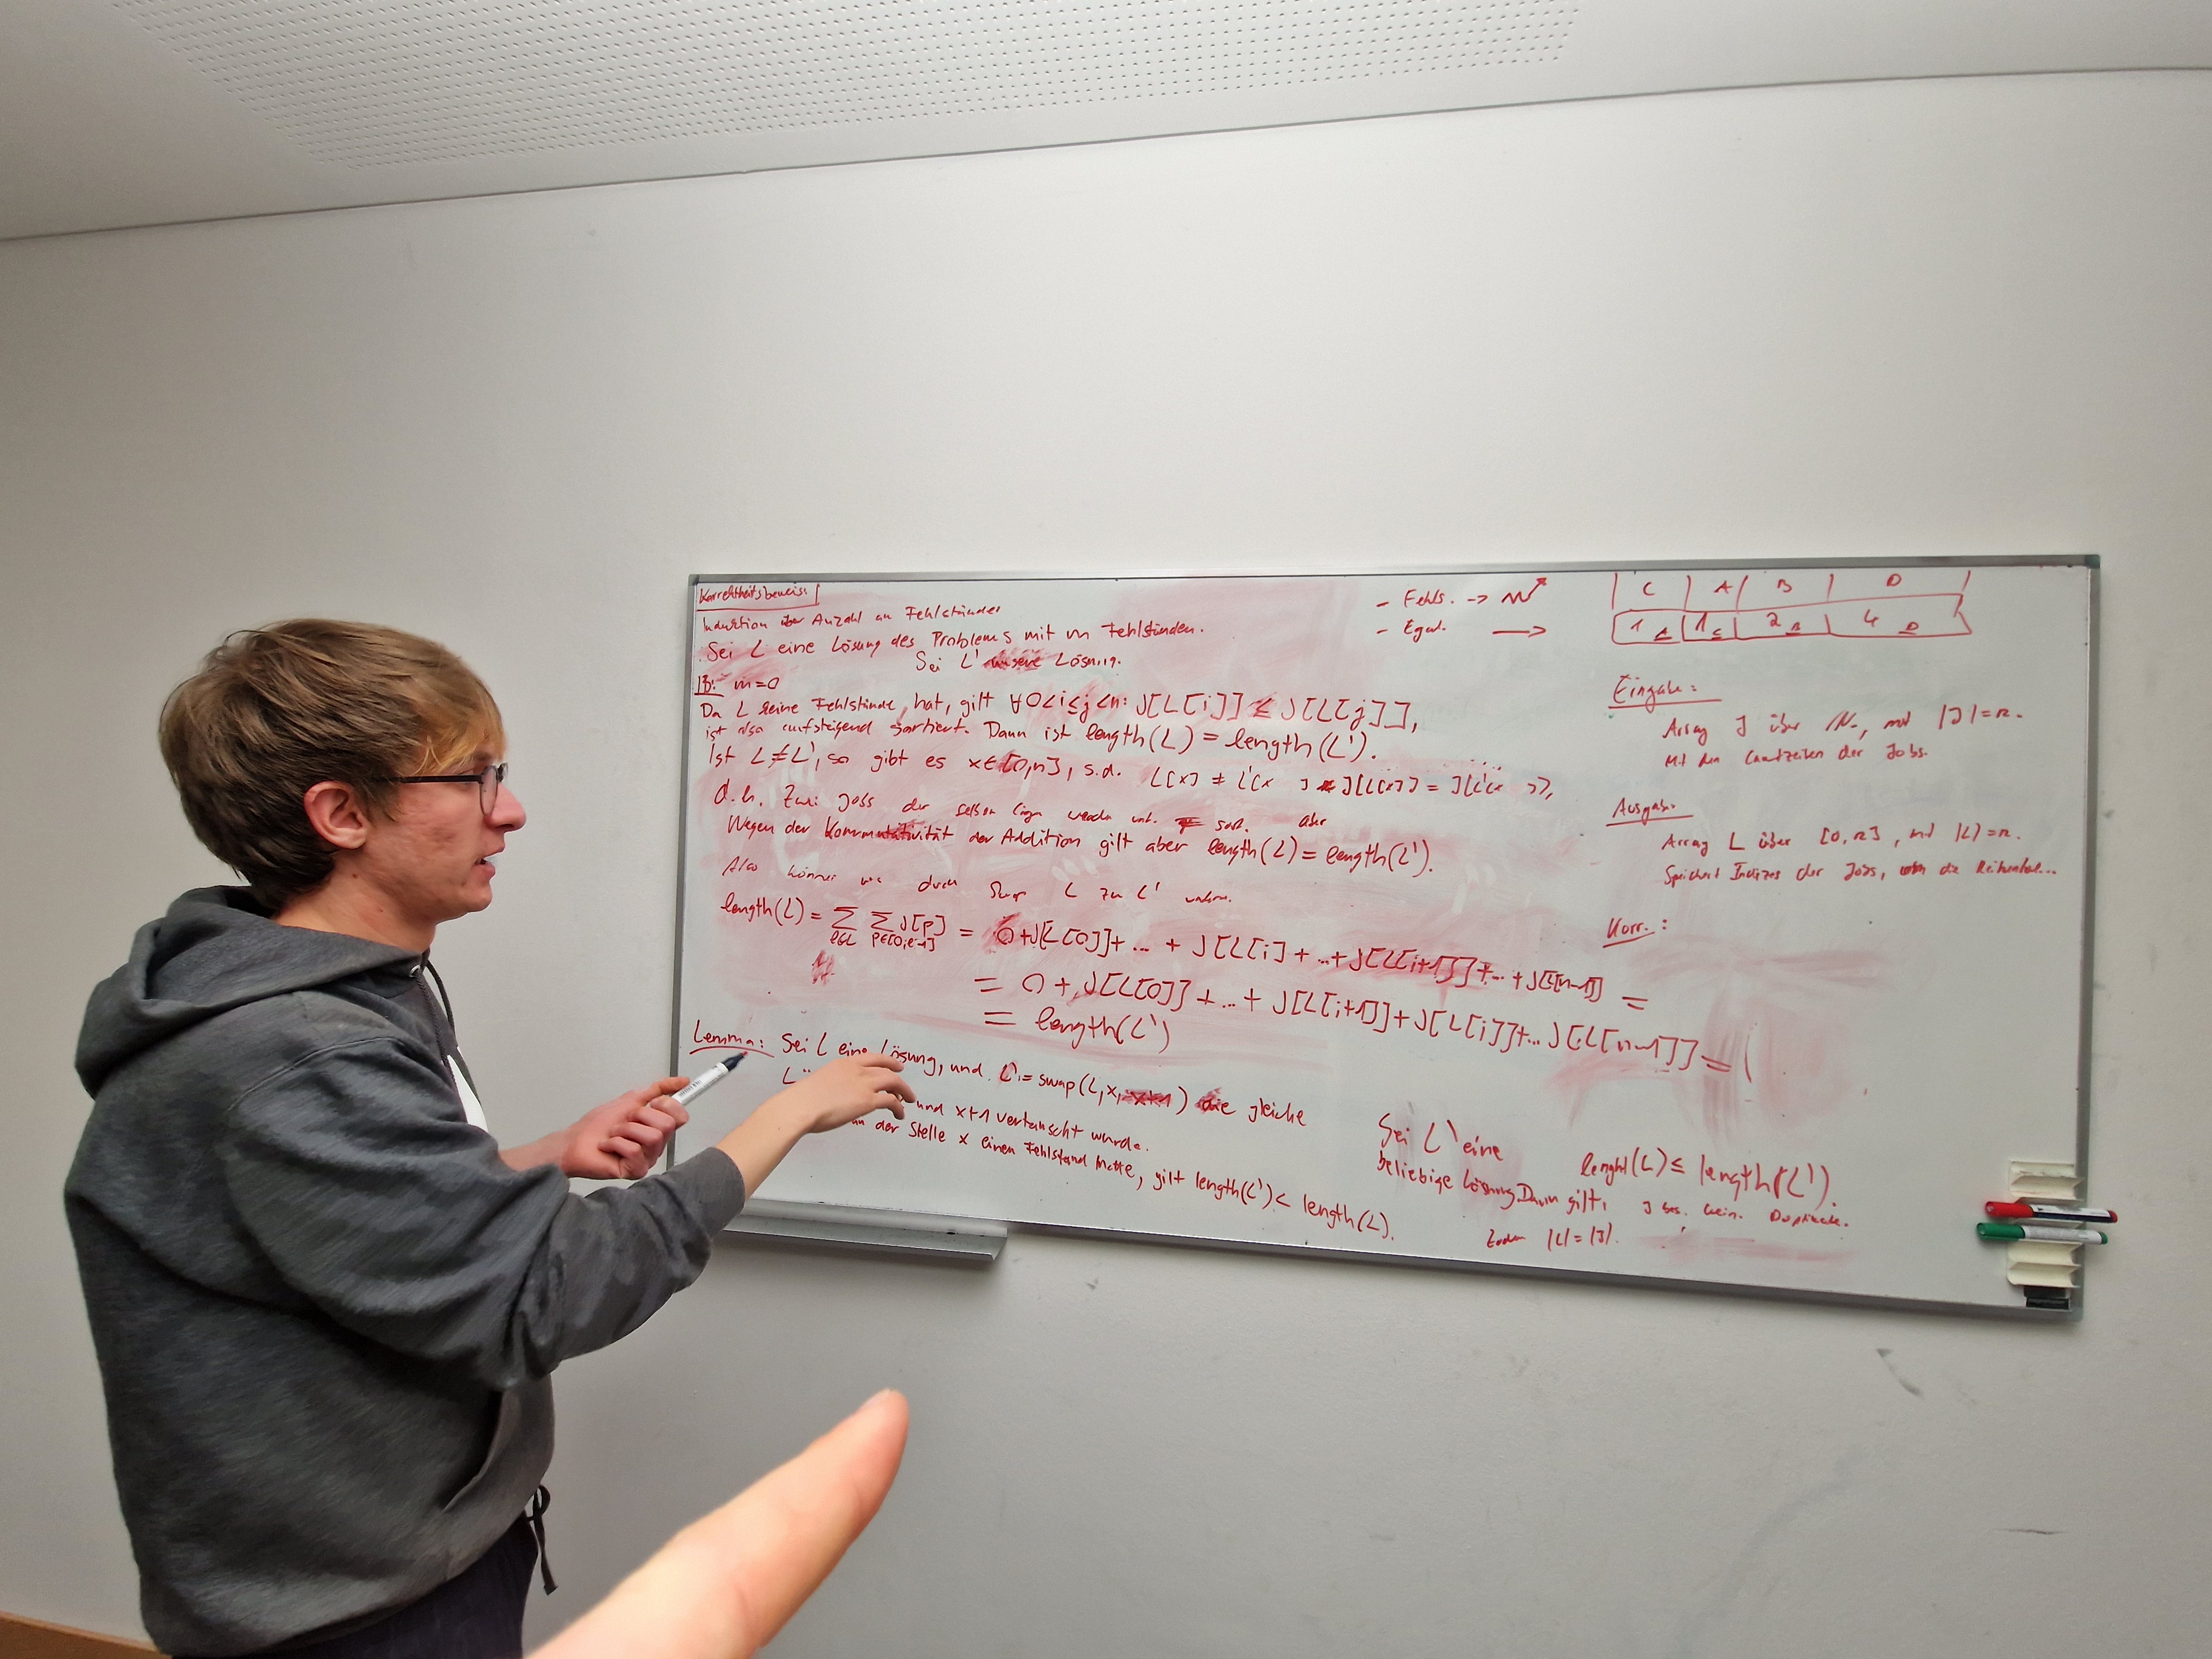 Korrektheitsbeweis:
Induktion über Anzahl an Fehlständen
Sei L eine Lösung des Problems mit m Fehlständen.
Sei L' unsere Lösung.
IB: m=0
Da L keine Fehlstände hat, gilt ∀0<i≤j<n: J[L[i]] ≤ J[L[j]],
ist also aufsteigend sortiert. Dann ist length(L) = length(L').
Ist L≠L', so gibt es x∈[0,n], s.d. L[x] ≠ L'[x] J[L[x]] = J[L'[x]],
d.h. Zwei Jobs der selben länge werden unt. sort. aber
Wegen der Kommutativität der Addition gilt aber length(L) = length(L').
Also können wir durch Swap L zu L'
length(L) = ∑ ∑ J[p] = 0+J[L[0]]+ ... + J[L[i] + ...+J[L[i+1]]+... + J[L[n-1]] =
l∈L p∈[0,l-1]
= 0 + J[L[0]] + ... + J[L[i+1]]+J[L[i]]+... J[L[n-1]] =
= length(L')
Lemma: Sei L eine Lösung, und L'= swap(L,x, x+1) die gleiche
L
und x+1 vertauscht wurde.
an der Stelle x einen Fehlstand hatte, gilt length(L') < length(L).
- Fehls. ->
- Egal. →
C A B D
1 A 1 C 2 B 4 D
Eingabe:
Array J über N, mit |J|=n.
Mit den Laufzeiten der Jobs.
Ausgabe:
Array L über [0,n], mit |L|=n.
Speichert Indizes der Jobs, die
Korr.:
Sei L' eine
beliebige Lösung. Dann gilt,
lenght(L) ≤ length(L').
J bes. kein. Duplikate.
Zudem |L| = |J|.